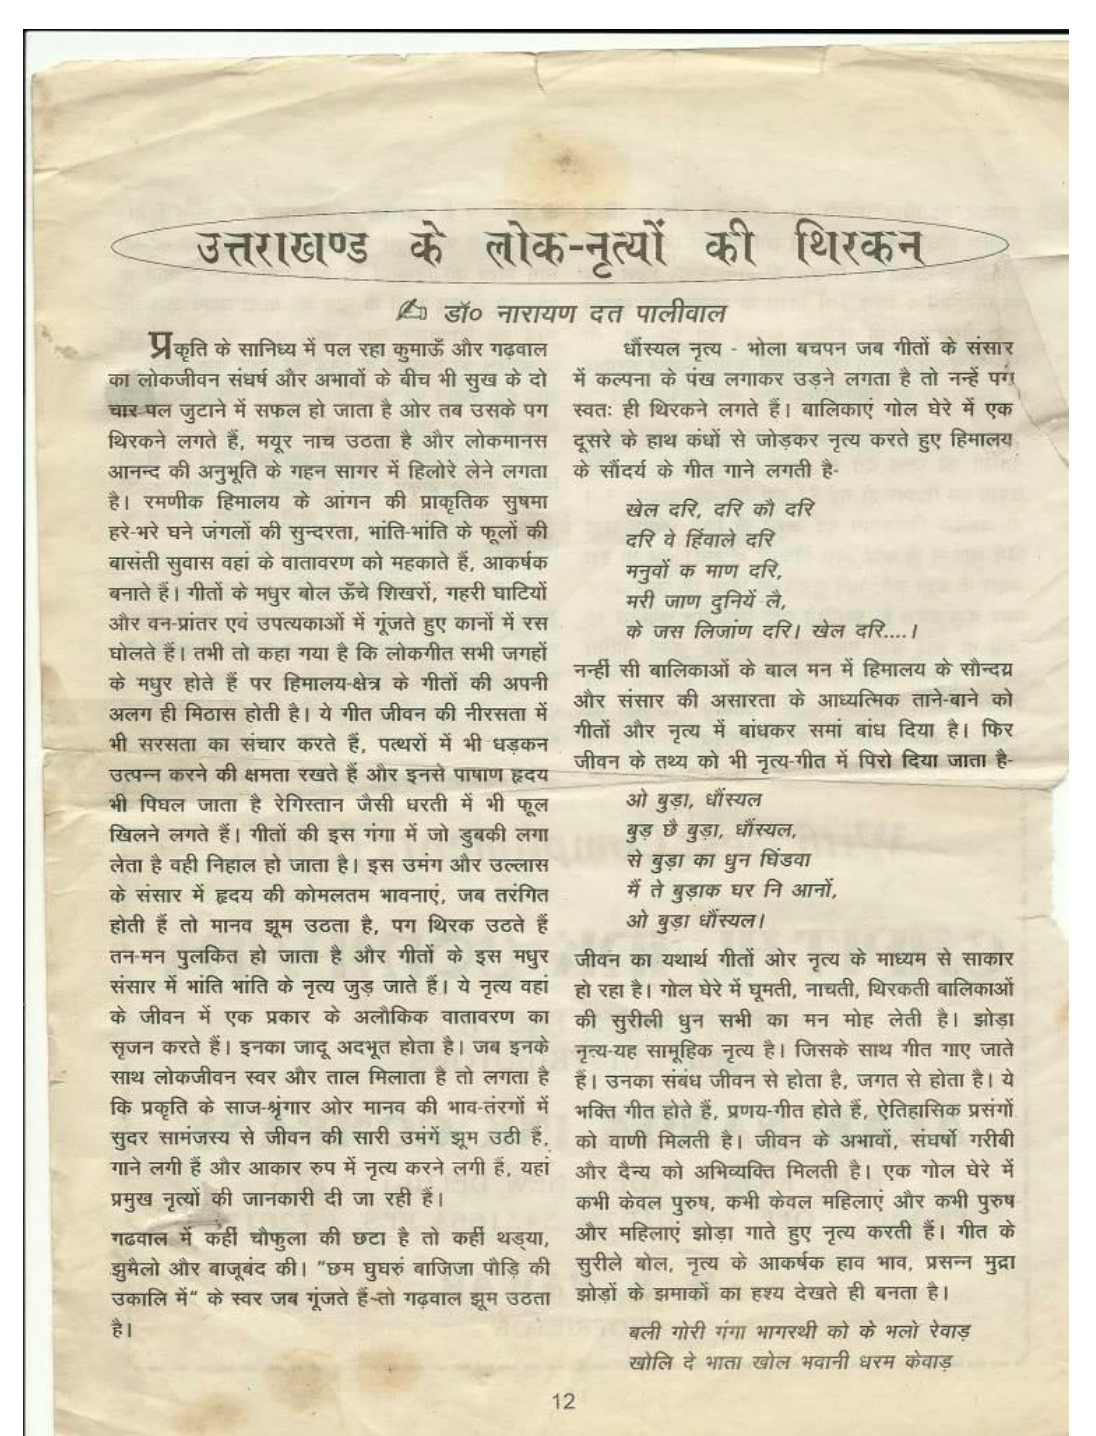 उत्तराखण्ड के लोक-नृत्यों की थिरकन
डॉ० नारायण दत्त पालीवाल
प्रकृति के सानिध्य में पल रहा कुमाऊँ और गढ़वाल
का लोकजीवन संघर्ष और अभावों के बीच भी सुख के दो
चार पल जुटाने में सफल हो जाता है ओर तब उसके पग
थिरकने लगते हैं, मयूर नाच उठता है और लोकमानस
आनन्द की अनुभूति के गहन सागर में हिलोरे लेने लगता
है। रमणीक हिमालय के आंगन की प्राकृतिक सुषमा
हरे-भरे घने जंगलों की सुन्दरता, भांति-भांति के फूलों की
बासंती सुवास वहां के वातावरण को महकाते हैं, आकर्षक
बनाते हैं। गीतों के मधुर बोल ऊँचे शिखरों, गहरी घाटियों
और वन-प्रांतर एवं उपत्यकाओं में गूंजते हुए कानों में रस
घोलते हैं। तभी तो कहा गया है कि लोकगीत सभी जगहों
के मधुर होते हैं पर हिमालय-क्षेत्र के गीतों की अपनी
अलग ही मिठास होती है। ये गीत जीवन की नीरसता में
भी सरसता का संचार करते हैं, पत्थरों में भी धड़कन
उत्पन्न करने की क्षमता रखते हैं और इनसे पाषाण हृदय
भी पिघल जाता है रेगिस्तान जैसी धरती में भी फूल
खिलने लगते हैं। गीतों की इस गंगा में जो डुबकी लगा
लेता है वही निहाल हो जाता है। इस उमंग और उल्लास
के संसार में हृदय की कोमलतम भावनाएं, जब तरंगित
होती हैं तो मानव झूम उठता है, पग थिरक उठते हैं
तन-मन पुलकित हो जाता है और गीतों के इस मधुर
संसार में भांति भांति के नृत्य जुड़ जाते हैं। ये नृत्य वहां
के जीवन में एक प्रकार के अलौकिक वातावरण का
सृजन करते हैं। इनका जादू अदभूत होता है। जब इनके
साथ लोकजीवन स्वर और ताल मिलाता है तो लगता है
कि प्रकृति के साज-श्रृंगार ओर मानव की भाव-तंरगों में
सुदर सामंजस्य से जीवन की सारी उमंगें झूम उठी हैं,
गाने लगी हैं और आकार रुप में नृत्य करने लगी हैं, यहां
प्रमुख नृत्यों की जानकारी दी जा रही हैं।
गढवाल में कहीं चौफुला की छटा है तो कहीं थड्या,
झुमैलो और बाजूबंद की। "छम घुघरुं बाजिजा पौड़ि की
उकालि में" के स्वर जब गूंजते हैं-तो गढ़वाल झूम उठता
है।
धौंस्यल नृत्य - भोला बचपन जब गीतों के संसार
में कल्पना के पंख लगाकर उड़ने लगता है तो नन्हें पग
स्वतः ही थिरकने लगते हैं। बालिकाएं गोल घेरे में एक
दूसरे के हाथ कंधों से जोड़कर नृत्य करते हुए हिमालय
के सौंदर्य के गीत गाने लगती है-
खेल दरि, दरि कौ दरि
दरि वे हिंवाले दरि
मनुवों क माण दरि,
मरी जाण दुनियें लै,
के जस लिजांण दरि। खेल दरि....।
नन्हीं सी बालिकाओं के बाल मन में हिमालय के सौन्दय्र
और संसार की असारता के आध्यत्मिक ताने-बाने को
गीतों और नृत्य में बांधकर समां बांध दिया है। फिर
जीवन के तथ्य को भी नृत्य-गीत में पिरो दिया जाता है-
ओ बुड़ा, धौंस्यल
बुड़ छै बुड़ा, धौंस्यल,
से बुड़ा का धुन घिंडवा
मैं ते बुड़ाक घर नि आनों,
ओ बुड़ा धौंस्यल।
जीवन का यथार्थ गीतों ओर नृत्य के माध्यम से साकार
हो रहा है। गोल घेरे में घूमती, नाचती, थिरकती बालिकाओं
की सुरीली धुन सभी का मन मोह लेती है। झोड़ा
नृत्य-यह सामूहिक नृत्य है। जिसके साथ गीत गाए जाते
हैं। उनका संबंध जीवन से होता है, जगत से होता है। ये
भक्ति गीत होते हैं, प्रणय-गीत होते हैं, ऐतिहासिक प्रसंगों
को वाणी मिलती है। जीवन के अभावों, संघर्षो गरीबी
और दैन्य को अभिव्यक्ति मिलती है। एक गोल घेरे में
कभी केवल पुरुष, कभी केवल महिलाएं और कभी पुरुष
और महिलाएं झोड़ा गाते हुए नृत्य करती हैं। गीत के
सुरीले बोल, नृत्य के आकर्षक हाव भाव, प्रसन्न मुद्रा
झोड़ों के झमाकों का हश्य देखते ही बनता है।
बली गोरी गंगा भागरथी को के भलो रेवाड़
खोलि दे भाता खोल भवानी धरम केवाड़
12